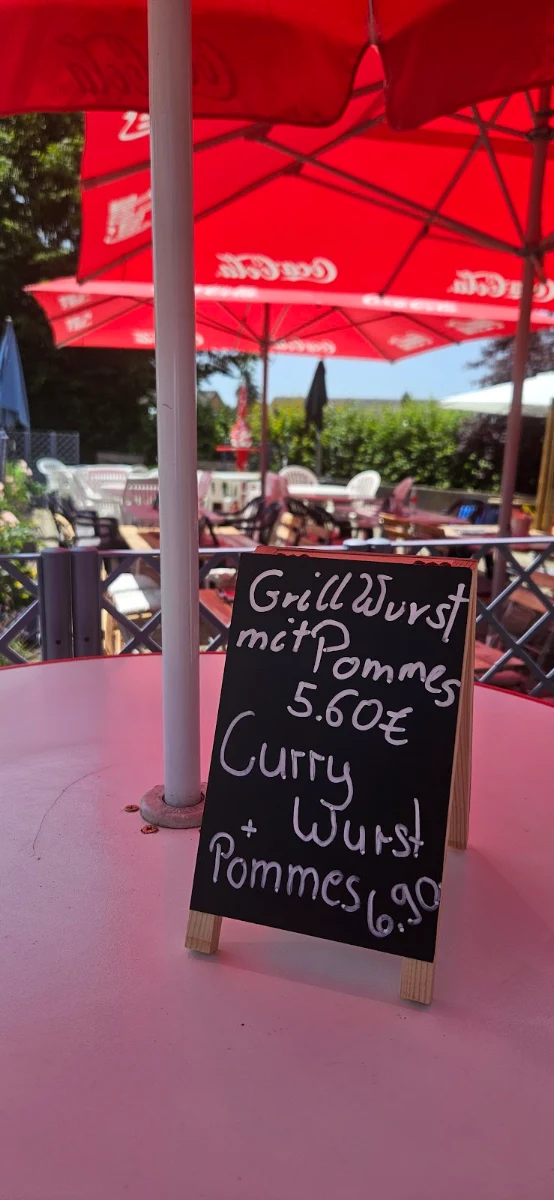 Coca-Cola
Coca-Cola
Coca-Cola
GrillWurst
mit Pommes
5.60€
Curry
Wurst
+
Pommes 6.90